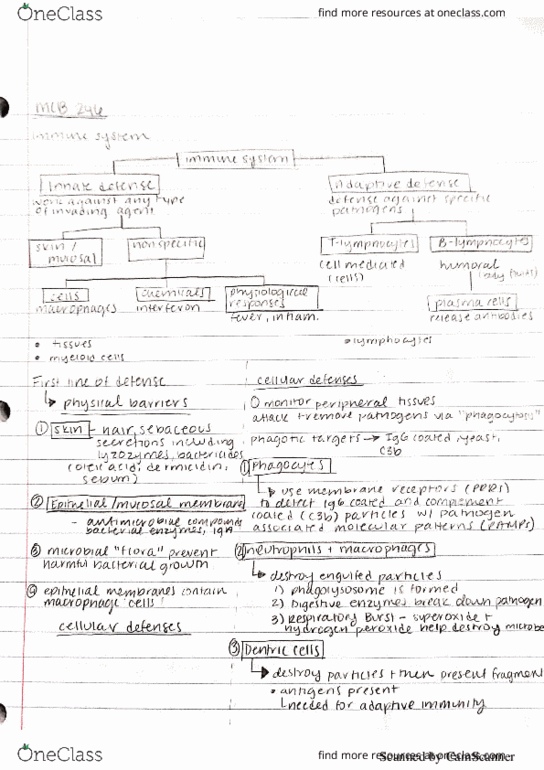 OneClass
find more resources at oneclass.com
MCB 246
immune system
immune system
Innate defense
work against any type
of invading agent
Adaptive defense
defense against specific
pathogens
skin /
mucosal
nonspecific
T-lymphocytes
B-lymphocytes
cell mediated
(cells)
humoral
(body fluids)
cells
macrophages
chemicals
interferon
physiological
responses
fever, inflam.
plasma cells
release antibodies
• tissues
• myeloid cells
• lymphocytes
First line of defense
↳ physical barriers
① skin - hair, sebaceous
secretions including
lyzozymes, bactericides
(oleic acid, dermicidin,
sebum)
② Epithelial/mucosal membrane
- antimicrobial compounds
bacterial enzymes, IgA
③ microbial "flora" prevent
harmful bacterial growth
④ epithelial membranes contain
macrophage cells!
cellular defenses
cellular defenses
monitor peripheral tissues
attack + remove pathogens via "phagocytosis"
phagotic targets → IgG coated, yeast,
C3b
① phagocytes
↳ use membrane receptors (PRRs)
to detect IgG coated and complement
coated (C3b) particles w/ pathogen
associated molecular patterns (PAMPs)
② neutrophils + macrophages
↳ destroy engulfed particles
1) phagolysosome is formed
2) Digestive enzymes break down pathogen
3) Respiratory Burst - superoxide +
hydrogen peroxide help destroy microbe
③ Dentric cells
↳ destroy particles + then present fragment
• antigens present
↳ needed for adaptive immunity
OneClass
find more resources at oneclass.com
Scanned by CamScanner